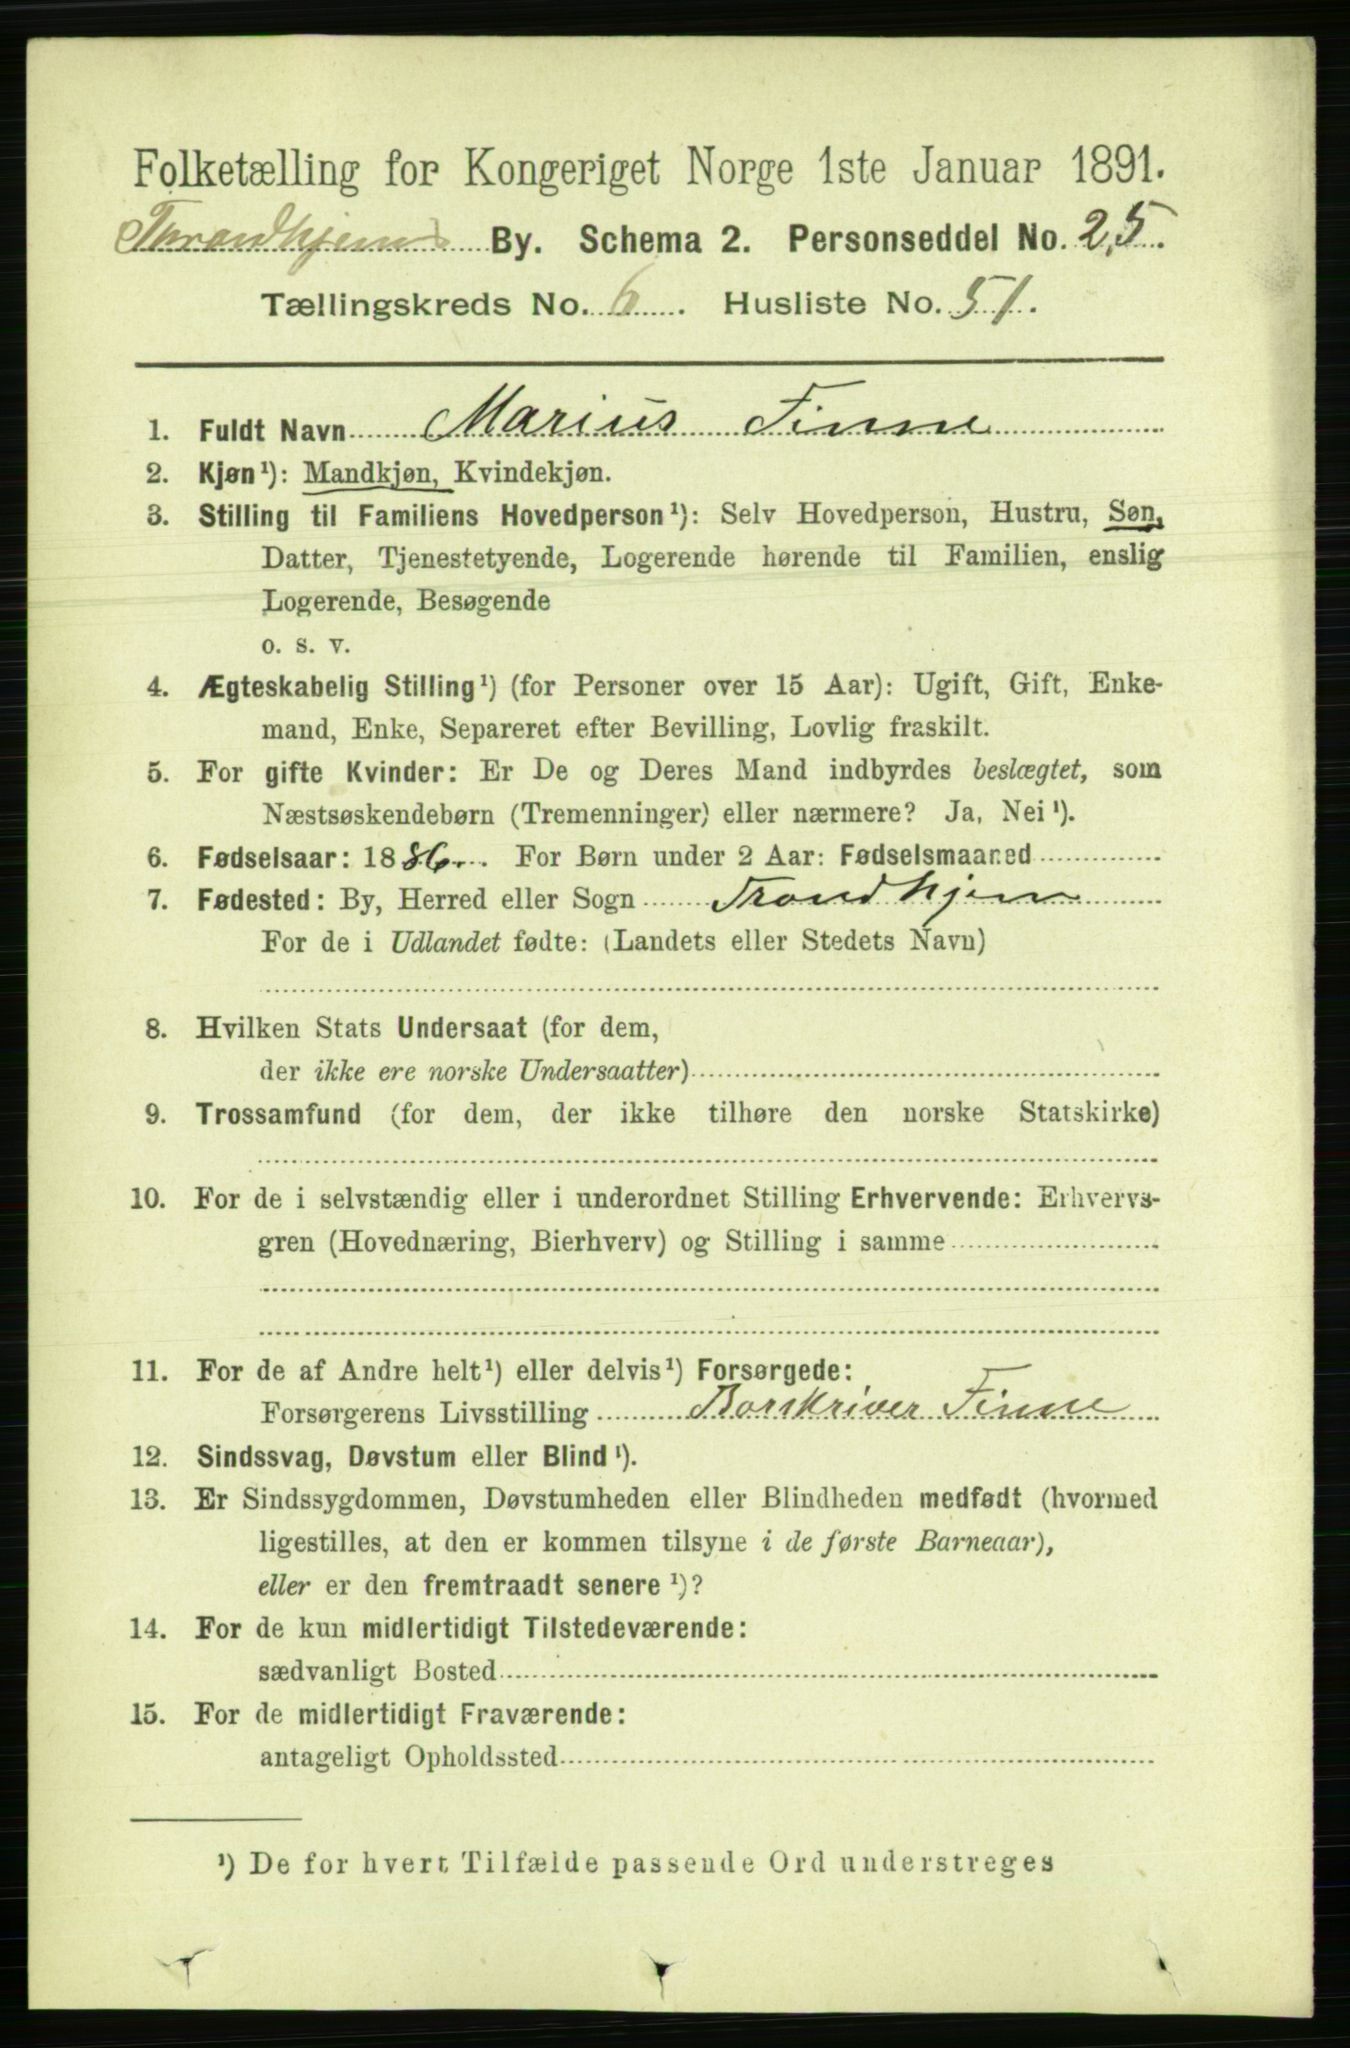 Folketælling for Kongeriget Norge 1ste Januar 1891.
Throndhjems By. Schema 2. Personseddel No. 25.
Tællingskreds No. 6. Husliste No. 51.
1. Fuldt Navn Marius Finne
2. Kjøn¹): Mandkjøn, Kvindekjøn.
3. Stilling til Familiens Hovedperson¹): Selv Hovedperson, Hustru, Søn,
Datter, Tjenestetyende, Logerende hørende til Familien, enslig
Logerende, Besøgende
o. s. v.
4. Ægteskabelig Stilling¹) (for Personer over 15 Aar): Ugift, Gift, Enke-
mand, Enke, Separeret efter Bevilling, Lovlig fraskilt.
5. For gifte Kvinder: Er De og Deres Mand indbyrdes beslægtet, som
Næstsøskendebørn (Tremenninger) eller nærmere? Ja, Nei¹).
6. Fødselsaar: 1886. For Børn under 2 Aar: Fødselsmaaned
7. Fødested: By, Herred eller Sogn Trondhjem
For de i Udlandet fødte: (Landets eller Stedets Navn)
8. Hvilken Stats Undersaat (for dem,
der ikke ere norske Undersaatter)
9. Trossamfund (for dem, der ikke tilhøre den norske Statskirke)
10. For de i selvstændig eller i underordnet Stilling Erhvervende: Erhvervs-
gren (Hovednæring, Bierhverv) og Stilling i samme
11. For de af Andre helt¹) eller delvis¹) Forsørgede:
Forsørgerens Livsstilling Borskriver Finne
12. Sindssvag, Døvstum eller Blind¹).
13. Er Sindssygdommen, Døvstumheden eller Blindheden medfødt (hvormed
ligestilles, at den er kommen tilsyne i de første Barneaar),
eller er den fremtraadt senere¹)?
14. For de kun midlertidigt Tilstedeværende:
sædvanligt Bosted
15. For de midlertidigt Fraværende:
antageligt Opholdssted
¹) De for hvert Tilfælde passende Ord understreges